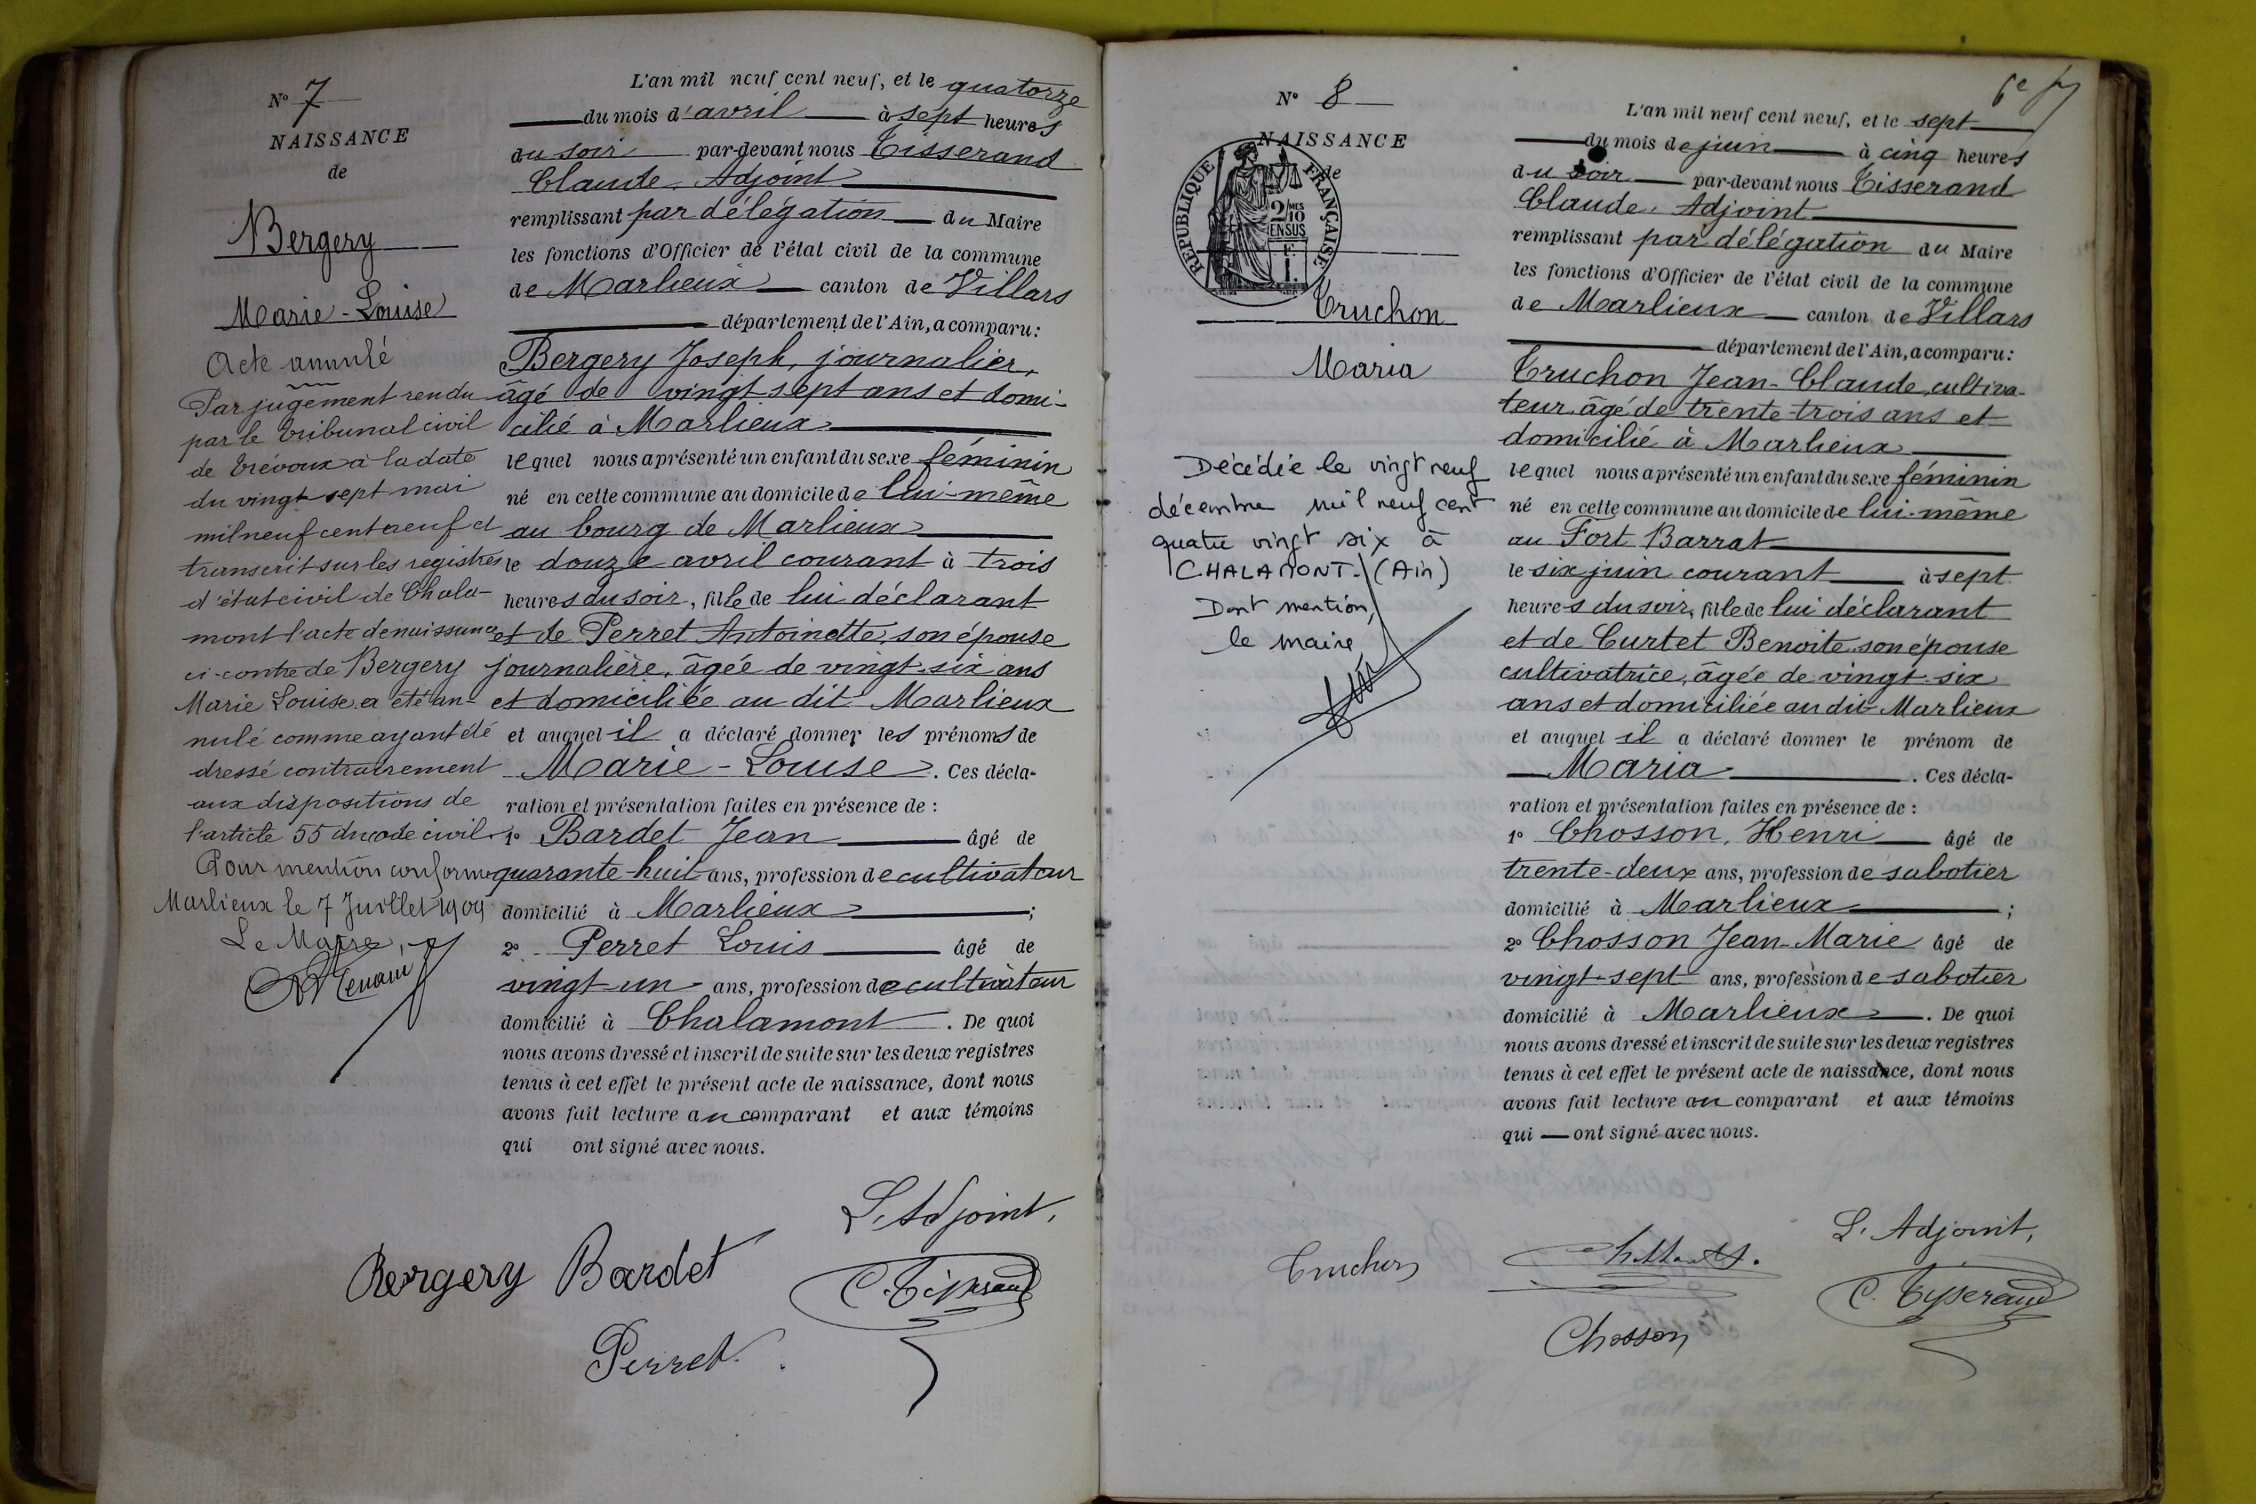 N° 7
NAISSANCE
de
Bergery
Marie-Louise
Acte annulé
Par jugement rendu
par le tribunal civil
de Trévoux à la date
du vingt sept mai
mil neuf cent neuf et
transcrit sur les registres
d'état civil de Chala-
mont l'acte de naissance
ci-contre de Bergery
Marie Louise a été an-
nulé comme ayant été
dressé contrairement
aux dispositions de
l'article 55 du code civil
Pour mention conforme
Marlieux le 7 Juillet 1909
Le Maire,
L'an mil neuf cent neuf, et le quatorze
du mois d'avril à sept heures
du soir par-devant nous Tisserand
Claude, Adjoint
remplissant par délégation du Maire
les fonctions d'Officier de l'état civil de la commune
de Marlieux canton de Villars
département de l'Ain, a comparu:
Bergery Joseph, journalier,
âgé de vingt sept ans et domi-
cilié à Marlieux
lequel nous a présenté un enfant du sexe féminin
né en cette commune au domicile de lui-même
au bourg de Marlieux
le douze avril courant à trois
heures du soir, fille de lui déclarant
et de Perret Antoinette, son épouse
journalière, âgée de vingt-six ans
et domiciliée au dit Marlieux
et auquel il a déclaré donner les prénoms de
Marie-Louise. Ces décla-
ration et présentation faites en présence de :
1° Bardet Jean âgé de
quarante-huit ans, profession de cultivateur
domicilié à Marlieux ;
2° Perret Louis âgé de
vingt-un ans, profession de cultivateur
domicilié à Chalamont. De quoi
nous avons dressé et inscrit de suite sur les deux registres
tenus à cet effet le présent acte de naissance, dont nous
avons fait lecture au comparant et aux témoins
qui ont signé avec nous.
L'Adjoint,
Bergery Bardet C. Tisserand
Perret
6e
N° 8
NAISSANCE
de
RÉPUBLIQUE FRANÇAISE
2/10 MES
EN SUS
F.
1.
Truchon
Maria
Décédée le vingt neuf
décembre mil neuf cent
quatre vingt six à
CHALAMONT. (Ain)
Dont mention,
le maire,
L'an mil neuf cent neuf, et le sept
du mois de juin à cinq heures
du soir par-devant nous Tisserand
Claude, Adjoint
remplissant par délégation du Maire
les fonctions d'Officier de l'état civil de la commune
de Marlieux canton de Villars
département de l'Ain, a comparu:
Truchon Jean-Claude, cultiva-
teur, âgé de trente-trois ans et
domicilié à Marlieux
lequel nous a présenté un enfant du sexe féminin
né en cette commune au domicile de lui-même
au Fort Barrat
le six juin courant à sept
heures du soir, fille de lui déclarant
et de Curtet Benoite, son épouse
cultivatrice, âgée de vingt-six
ans et domiciliée au dit Marlieux
et auquel il a déclaré donner le prénom de
Maria. Ces décla-
ration et présentation faites en présence de :
1° Chosson, Henri âgé de
trente-deux ans, profession de sabotier
domicilié à Marlieux ;
2° Chosson Jean-Marie âgé de
vingt-sept ans, profession de sabotier
domicilié à Marlieux. De quoi
nous avons dressé et inscrit de suite sur les deux registres
tenus à cet effet le présent acte de naissance, dont nous
avons fait lecture au comparant et aux témoins
qui — ont signé avec nous.
L'Adjoint,
Truchon C. Tisserand
Chosson